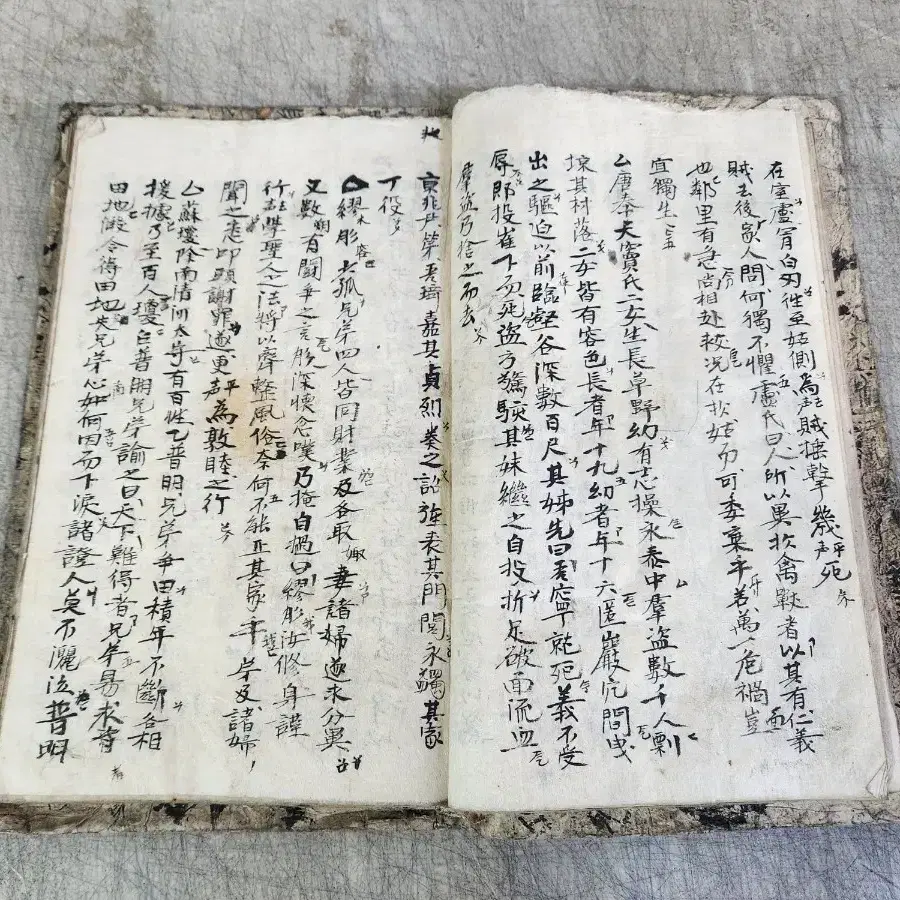 在室盧冒白刃往至姑側為賊捶擊幾死
賊去後家人問何獨不懼盧氏曰人所以異於禽獸者以其有仁義
也鄰里有急尚相赴救況在於姑而可委棄乎若萬一危禍豈
宜獨生
唐奉天竇氏二女生長草野幼有志操永泰中羣盜數千人剽
掠其村落二女皆有容色長者年十九幼者年十六匿巖穴間曳
出之驅迫以前臨壑谷深數百尺其姊先曰吾寧就死義不受
辱即投崖下而死盜方驚駭其妹繼之自投折足破面流血
羣盜乃捨之而去
京兆尹第五琦嘉其貞烈奏之詔旌表其門閭永蠲其家
丁役
繆肜少孤兄弟四人皆同財業及各取妻諸婦遂求分異
又數有鬪爭之言肜深懷忿嘆乃掩自撾曰繆肜汝修身謹
行學聖人之法將以齊整風俗奈何不能正其家乎弟及諸婦
聞之悉叩頭謝罪遂更為敦睦之行
蘇瓊除南清河太守百姓乙普明兄弟爭田積年不斷各相
援據乃至百人瓊召普明兄弟諭之曰天下難得者兄弟易求者
田地假令得田地失兄弟心如何因而下淚諸證人莫不灑泣普明